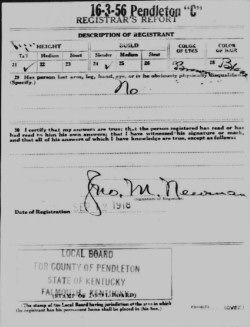 16-3-56 Pendleton "C"
REGISTRAR'S REPORT
DESCRIPTION OF REGISTRANT
HEIGHT BUILD COLOR OF EYES COLOR OF HAIR
Tall Medium Short Slender Medium Stout
21 ✓ 22 23 24 ✓ 25 26 27 28
29 Has person lost arm, leg, hand, eye, or is he obviously physically disqualified?
(Specify.)
No
30 I certify that my answers are true; that the person registered has read or has
had read to him his own answers; that I have witnessed his signature or mark,
and that all of his answers of which I have knowledge are true, except as follows:
Jno. M. Newman
(Signature of Registrar)
Date of Registration 1918
LOCAL BOARD
FOR COUNTY OF PENDLETON
STATE OF KENTUCKY
FALMOUTH, KENTUCKY
(STAMP OF LOCAL BOARD)
(The stamp of the Local Board having jurisdiction of the area in which
the registrant has his permanent home shall be placed in this box.)